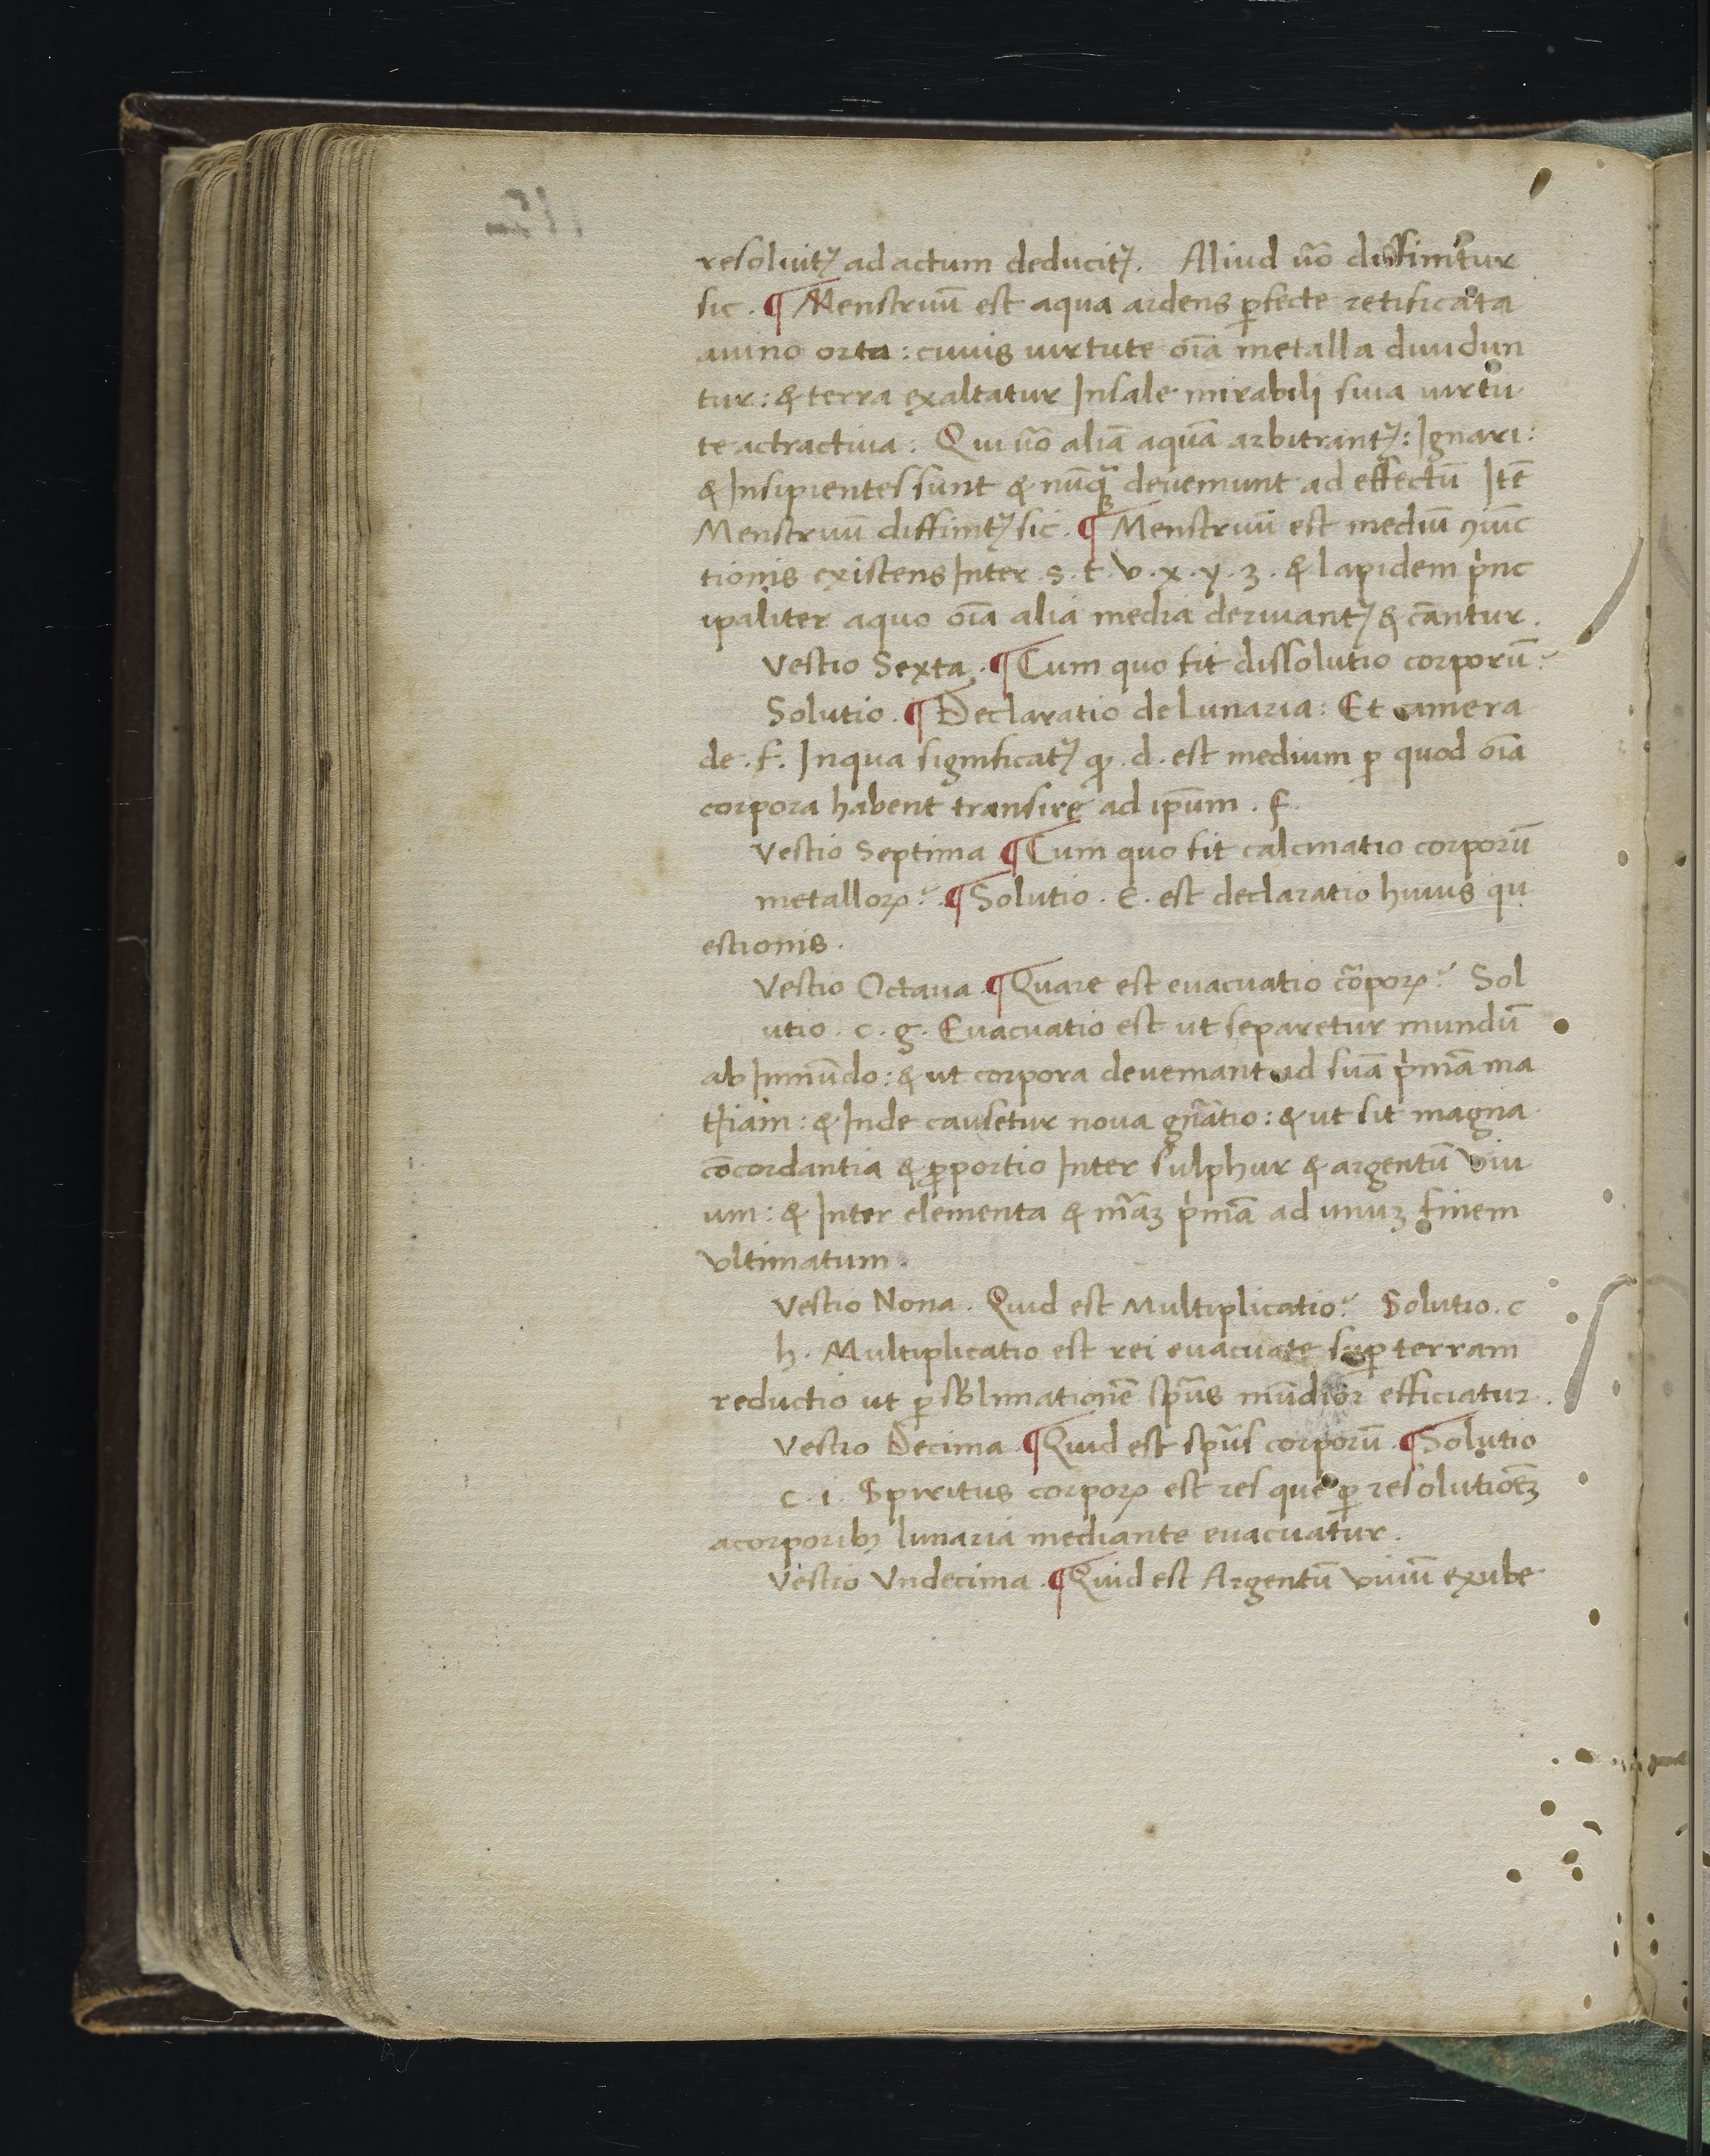 resoluitꝶ ad actum deducitꝶ. Aliud uõ diffinitur
sic. ¶ Menstruũ est aqua ardens ꝑfecte retificata
auino orta: cuius uirtute oĩa metalla diuidun
tur: & terra exaltatur Insale mirabili sua uirtu
te actractiua: Qui uõ aliã aquã arbitrantꝶ: Ignari:
& Insipientes sunt & nũqͣ deueniunt ad effectũ Itẽ
Menstruũ diffinitꝶ sic. ¶ Menstruũ est mediũ ꝯiũc
tionis existens Inter .s.t.v.x.y.z. & lapidem pͥnc
ipaliter aquo oĩa alia media deriuantꝶ & cãntur.
Vestio Sexta. ¶ Cum quo fit dissolutio corporũ?
Solutio. ¶ Declaratio de Lunaria: Et camera
de .f. Inqua significatꝶ ꝙ .d. est medium ꝑ quod oĩa
corpora habent transire ad ip̃um .f.
Vestio Septima ¶ Cum quo fit calcinatio corporũ
metalloꝝ? ¶ Solutio .E. est declaratio huius qu
estionis.
Vestio Octaua. ¶ Quare est euacuatio corpoꝝ? Sol
utio .c.g. Euacuatio est ut separetur mundũ
ab Immũdo: & ut corpora deueniant ad suã pͥmã ma
t̃iam: & Inde causetur noua gñatio: & ut sit magna
cõcordantia & ꝓportio Inter sulphur & argentũ viu
um: & Inter elementa & mãꝫ pͥmã ad unuꝫ finem
vltimatum.
Vestio Nona. Quid est Multiplicatio? Solutio .c
h. Multiplicatio est rei euacuate suꝑ terram
reductio ut ꝑ sb̃limationẽ sp̃us mũdior efficiatur.
Vestio Decima. ¶ Quid est sp̃us corporũ. ¶ Solutio
c.i. Spiritus corpoꝝ est res que ꝑ resolutiõeꝫ
acorporibꝫ lunaria mediante euacuatur.
Vestio Vndecima. ¶ Quid est Argentũ viuũ exube